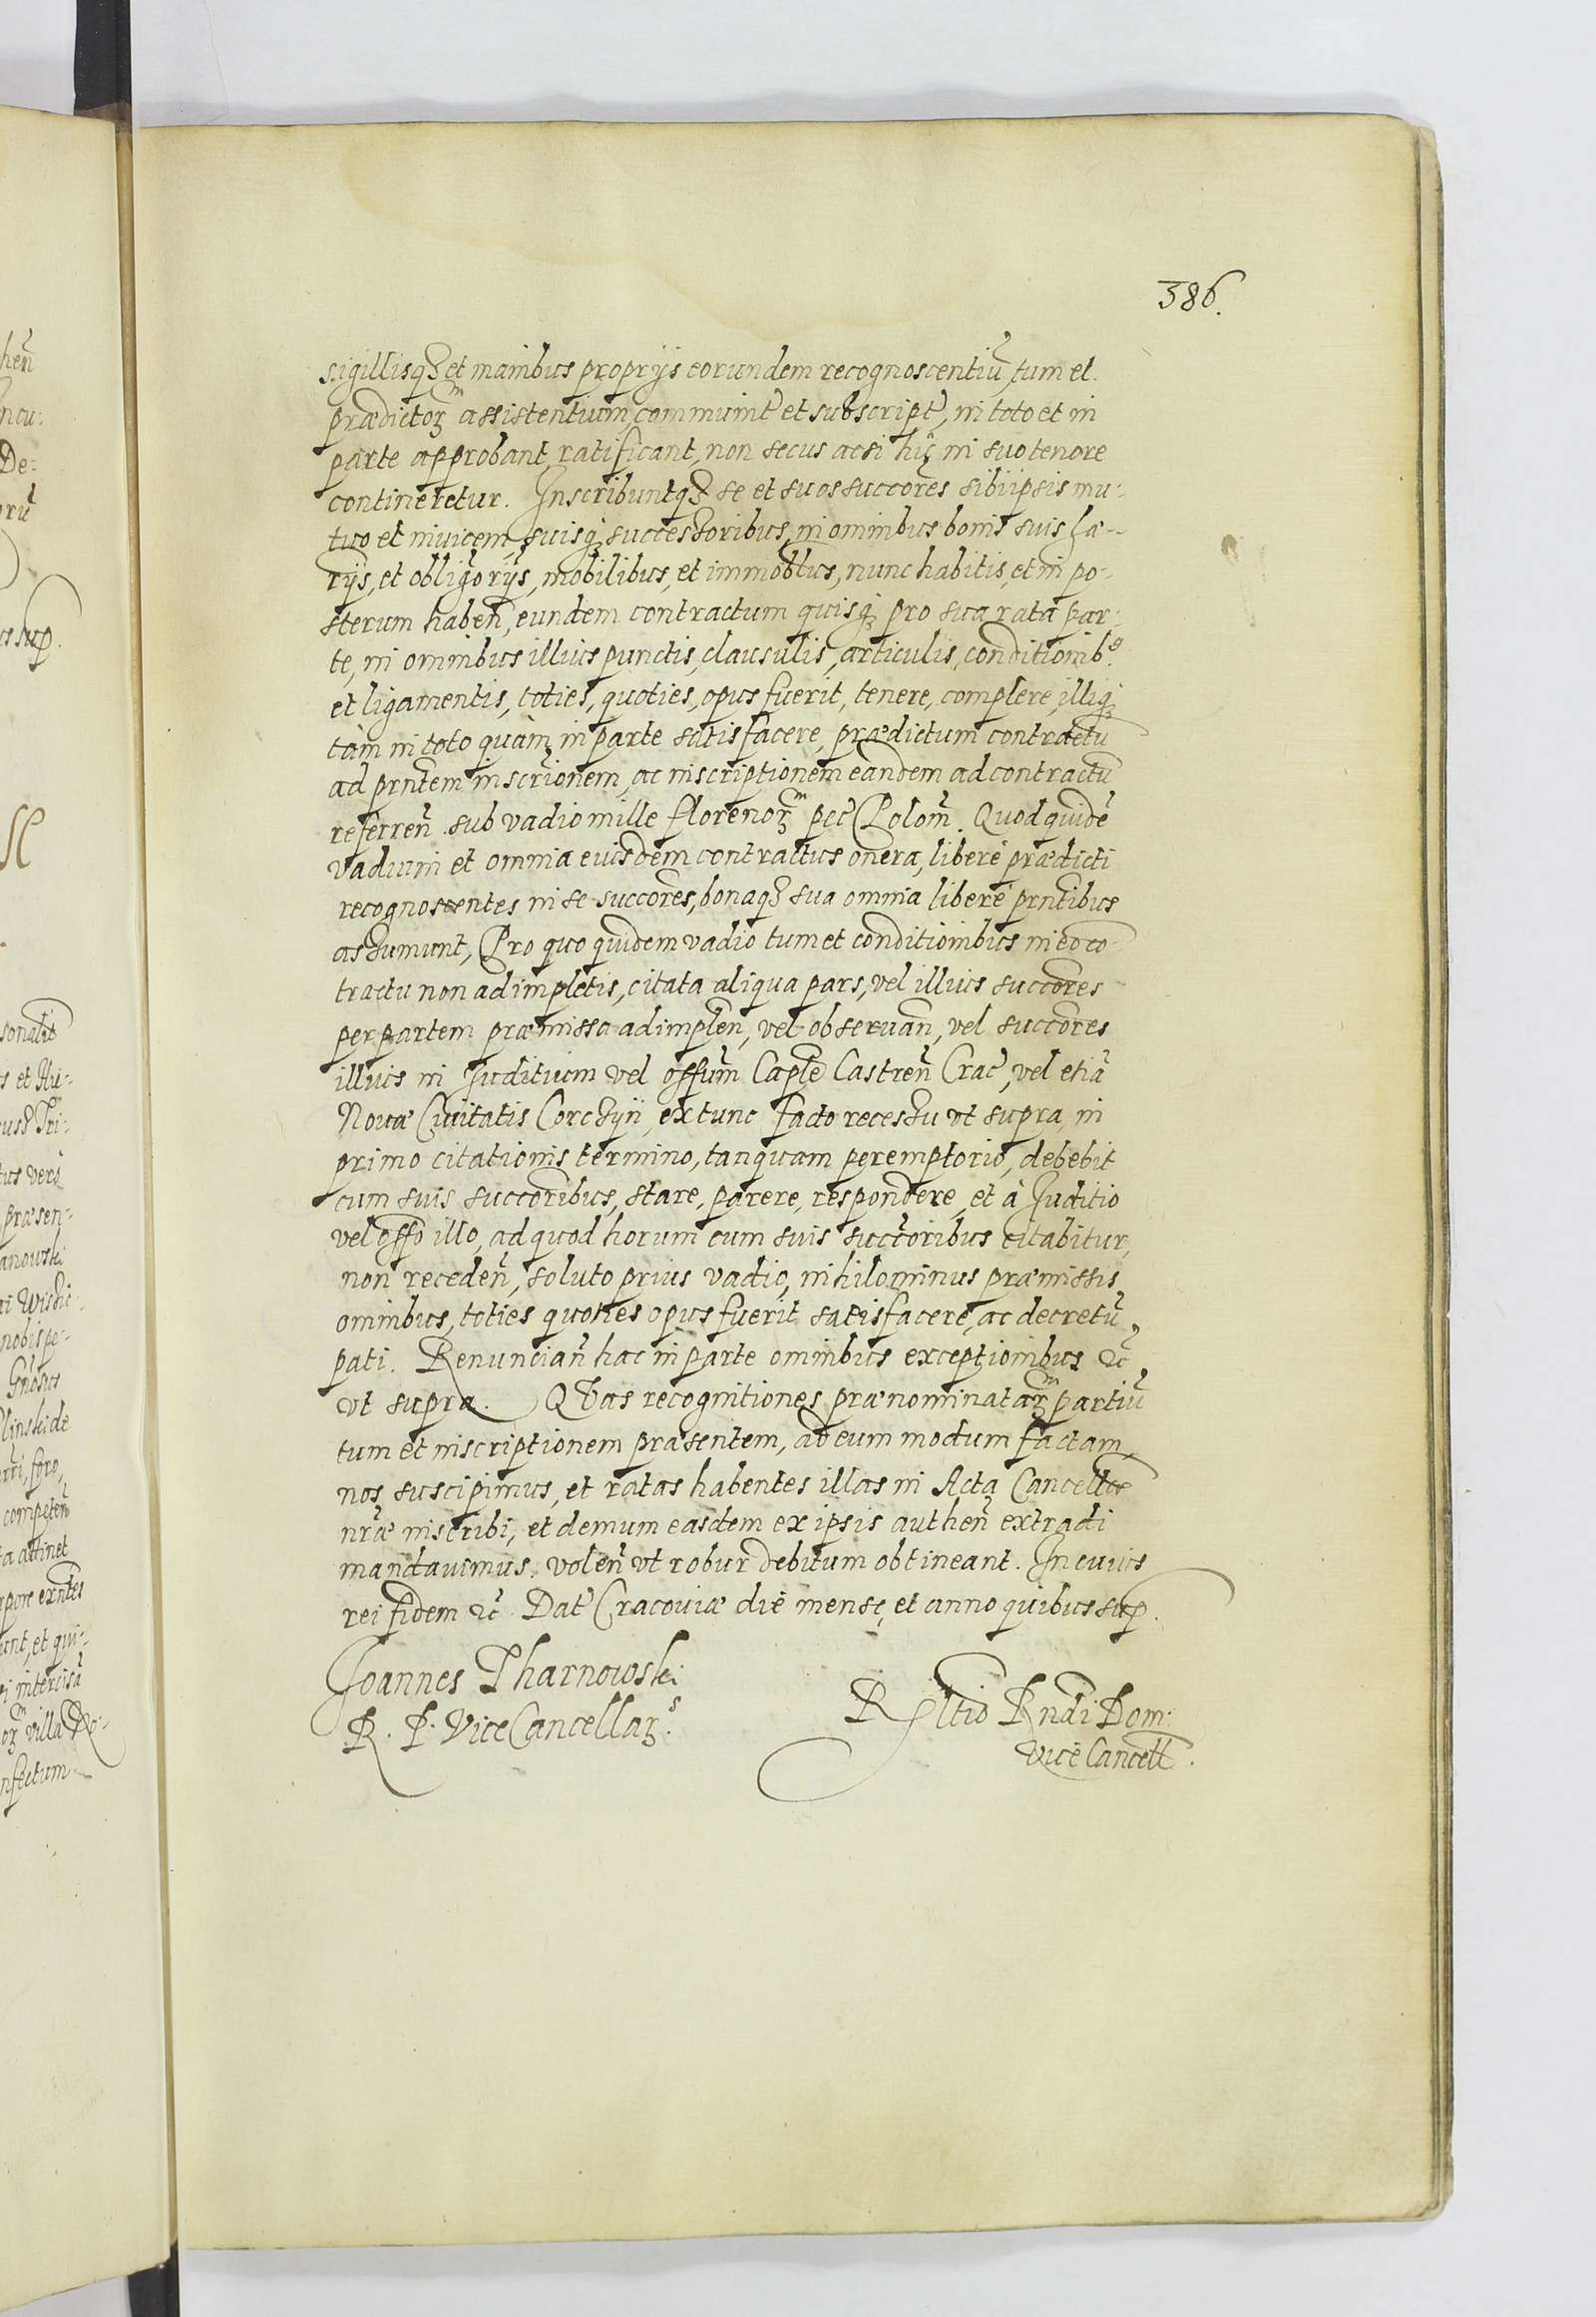 386.
sigillisq3 et manibus proprijs eorundem recognoscentiũ, tum et
prædictorm assistentium, communit̃ et subscript̃, in toto et in
parte approbant, ratificant, non secus acsi hic in suo tenore
contineretur. Inscribuntq3 se et suos succores sibiipsis mu-
tuo et inuicem, suisq3 successoribus, in omnibus bonis suis hæ-
rijs, et obligorijs, mobilibus, et immobbus, nunc habitis, et in po-
sterum habeñ, eundem contractum quisq3 pro sua rata par-
te, in omnibus illius punctis, clausulis, articulis, conditionib9
et ligamentis, toties, quoties, opus fuerit, tenere, complere, illiq3
tàm in toto quàm in parte satisfacere, prædictum contractũ
ad prntem inscrionem, ac inscriptionem eandem ad contractũ
referreñ sub vadio mille florenorm pec̃ Polom̃. Quod quidẽ
vadium et omnia eiusdem contractus onera, liberè prædicti
recognoscentes in se succores, bonaq3 sua omnia liberè prntibus
assumunt, Pro quo quidem vadio tum et conditionibus in eo co-
tractu non adimpletis, citata aliqua pars, vel illius succores
per partem præmissa adimpleñ, vel obseruañ, vel succores
illius in Juditium vel offum Caple Castreñ Crac̃, vel etiã
Nouæ Ciuitatis Corczyn, ex tunc facto recessu vt supra, in
primo citationis termino, tanquam peremptorio, debebit
cum suis succoribus, stare, parere, respondere, et à Juditio
vel offo illo, ad quod horum cum suis succoribus citabitur,
non recedeñ, soluto prius vadio, nihilominus præmissis
omnibus, toties quoties opus fuerit satisfacere, ac decretũ
pati. Renunciañ hac in parte omnibus exceptionibus &c̃
vt supra. QVas recognitiones prænominatarm partiũ
tum et inscriptionem præsentem, ad eum modum factam
nos suscipimus, et ratas habentes illas in Acta Cancellæ
nr̃æ inscribi, et demum easdem ex ipsis autheñ extradi
mandauimus. voleñ vt robur debitum obtineant. In cuius
rei fidem &c̃ Dat̃ Cracouiæ die mense, et anno quibus sup.
Joannes Tharnowski
R. P. ViceCancellars.
Rltio Rndi Dom:
ViceCancell.